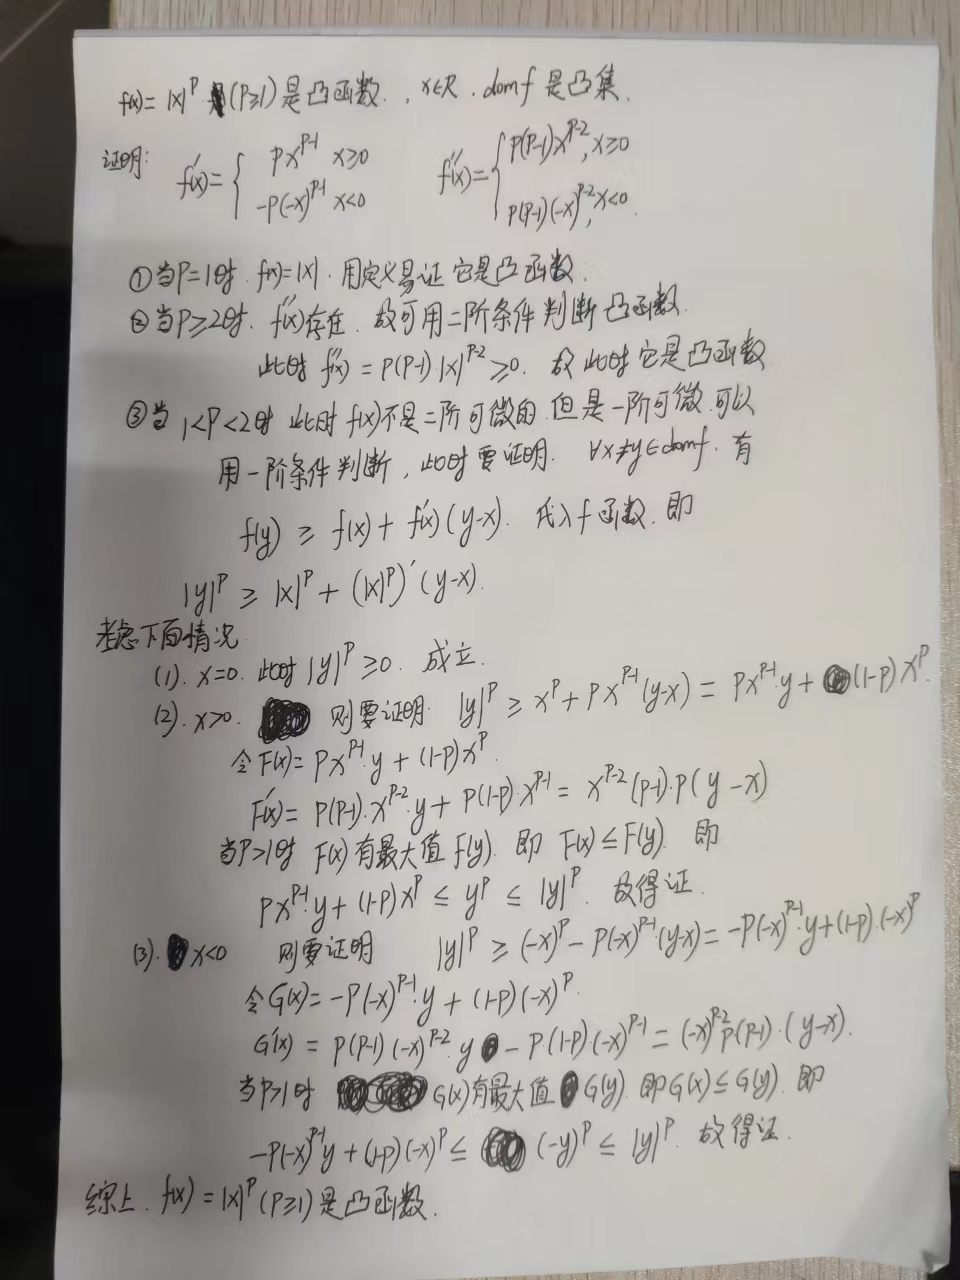 f(x)=|x|^p (p≥1)是凸函数., x∈R. domf 是凸集.
证明: f'(x)={ px^{p-1} x≥0 f''(x)={ p(p-1)x^{p-2}, x≥0
-p(-x)^{p-1} x<0 p(p-1)(-x)^{p-2}, x<0.
①当p=1时. f(x)=|x|. 用定义易证它是凸函数.
②当p≥2时. f''(x)存在. 故可用二阶条件判断凸函数.
此时 f''(x)=p(p-1)·|x|^{p-2}≥0. 故此时它是凸函数
③当 1<p<2时 此时f(x)不是二阶可微的.但是一阶可微.可以
用一阶条件判断, 此时要证明. ∀x≠y∈domf. 有
f(y) ≥ f(x)+f'(x)(y-x). 代入f函数. 即
|y|^p ≥ |x|^p + (|x|^p)'(y-x).
考虑下面情况
(1). x=0. 此时 |y|^p ≥0. 成立.
(2). x>0. 则要证明. |y|^p ≥ x^p+px^{p-1}(y-x) = px^{p-1}·y + (1-p)x^p.
令F(x)=px^{p-1}·y+(1-p)x^p.
F'(x)=p(p-1)·x^{p-2}·y+p(1-p)·x^{p-1}=x^{p-2}(p-1)·p(y-x)
当p>1时 F(x)有最大值 F(y). 即 F(x)≤F(y). 即
px^{p-1}·y+(1-p)x^p ≤ y^p ≤ |y|^p. 故得证.
(3). x<0 则要证明 |y|^p ≥ (-x)^p-p(-x)^{p-1}·(y-x)=-p(-x)^{p-1}·y+(1-p)·(-x)^p
令G(x)=-p(-x)^{p-1}·y+(1-p)(-x)^p.
G'(x)=p(p-1)·(-x)^{p-2}·y-p(1-p)·(-x)^{p-1}=(-x)^{p-2}p(p-1)·(y-x).
当p>1时 G(x)有最大值 G(y). 即G(x)≤G(y). 即
-p(-x)^{p-1}y+(1-p)(-x)^p ≤ (-y)^p ≤ |y|^p. 故得证.
综上. f(x)=|x|^p (p≥1)是凸函数.